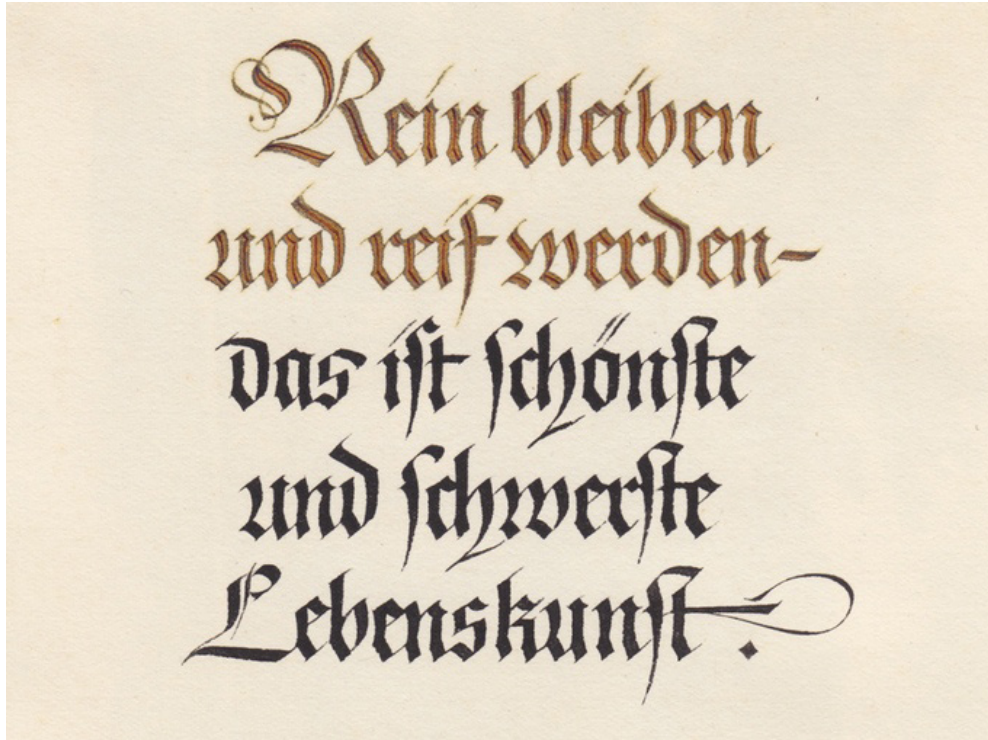 Rein bleiben
und reif werden-
das iſt ſchönſte
und ſchwerſte
Lebenskunſt.